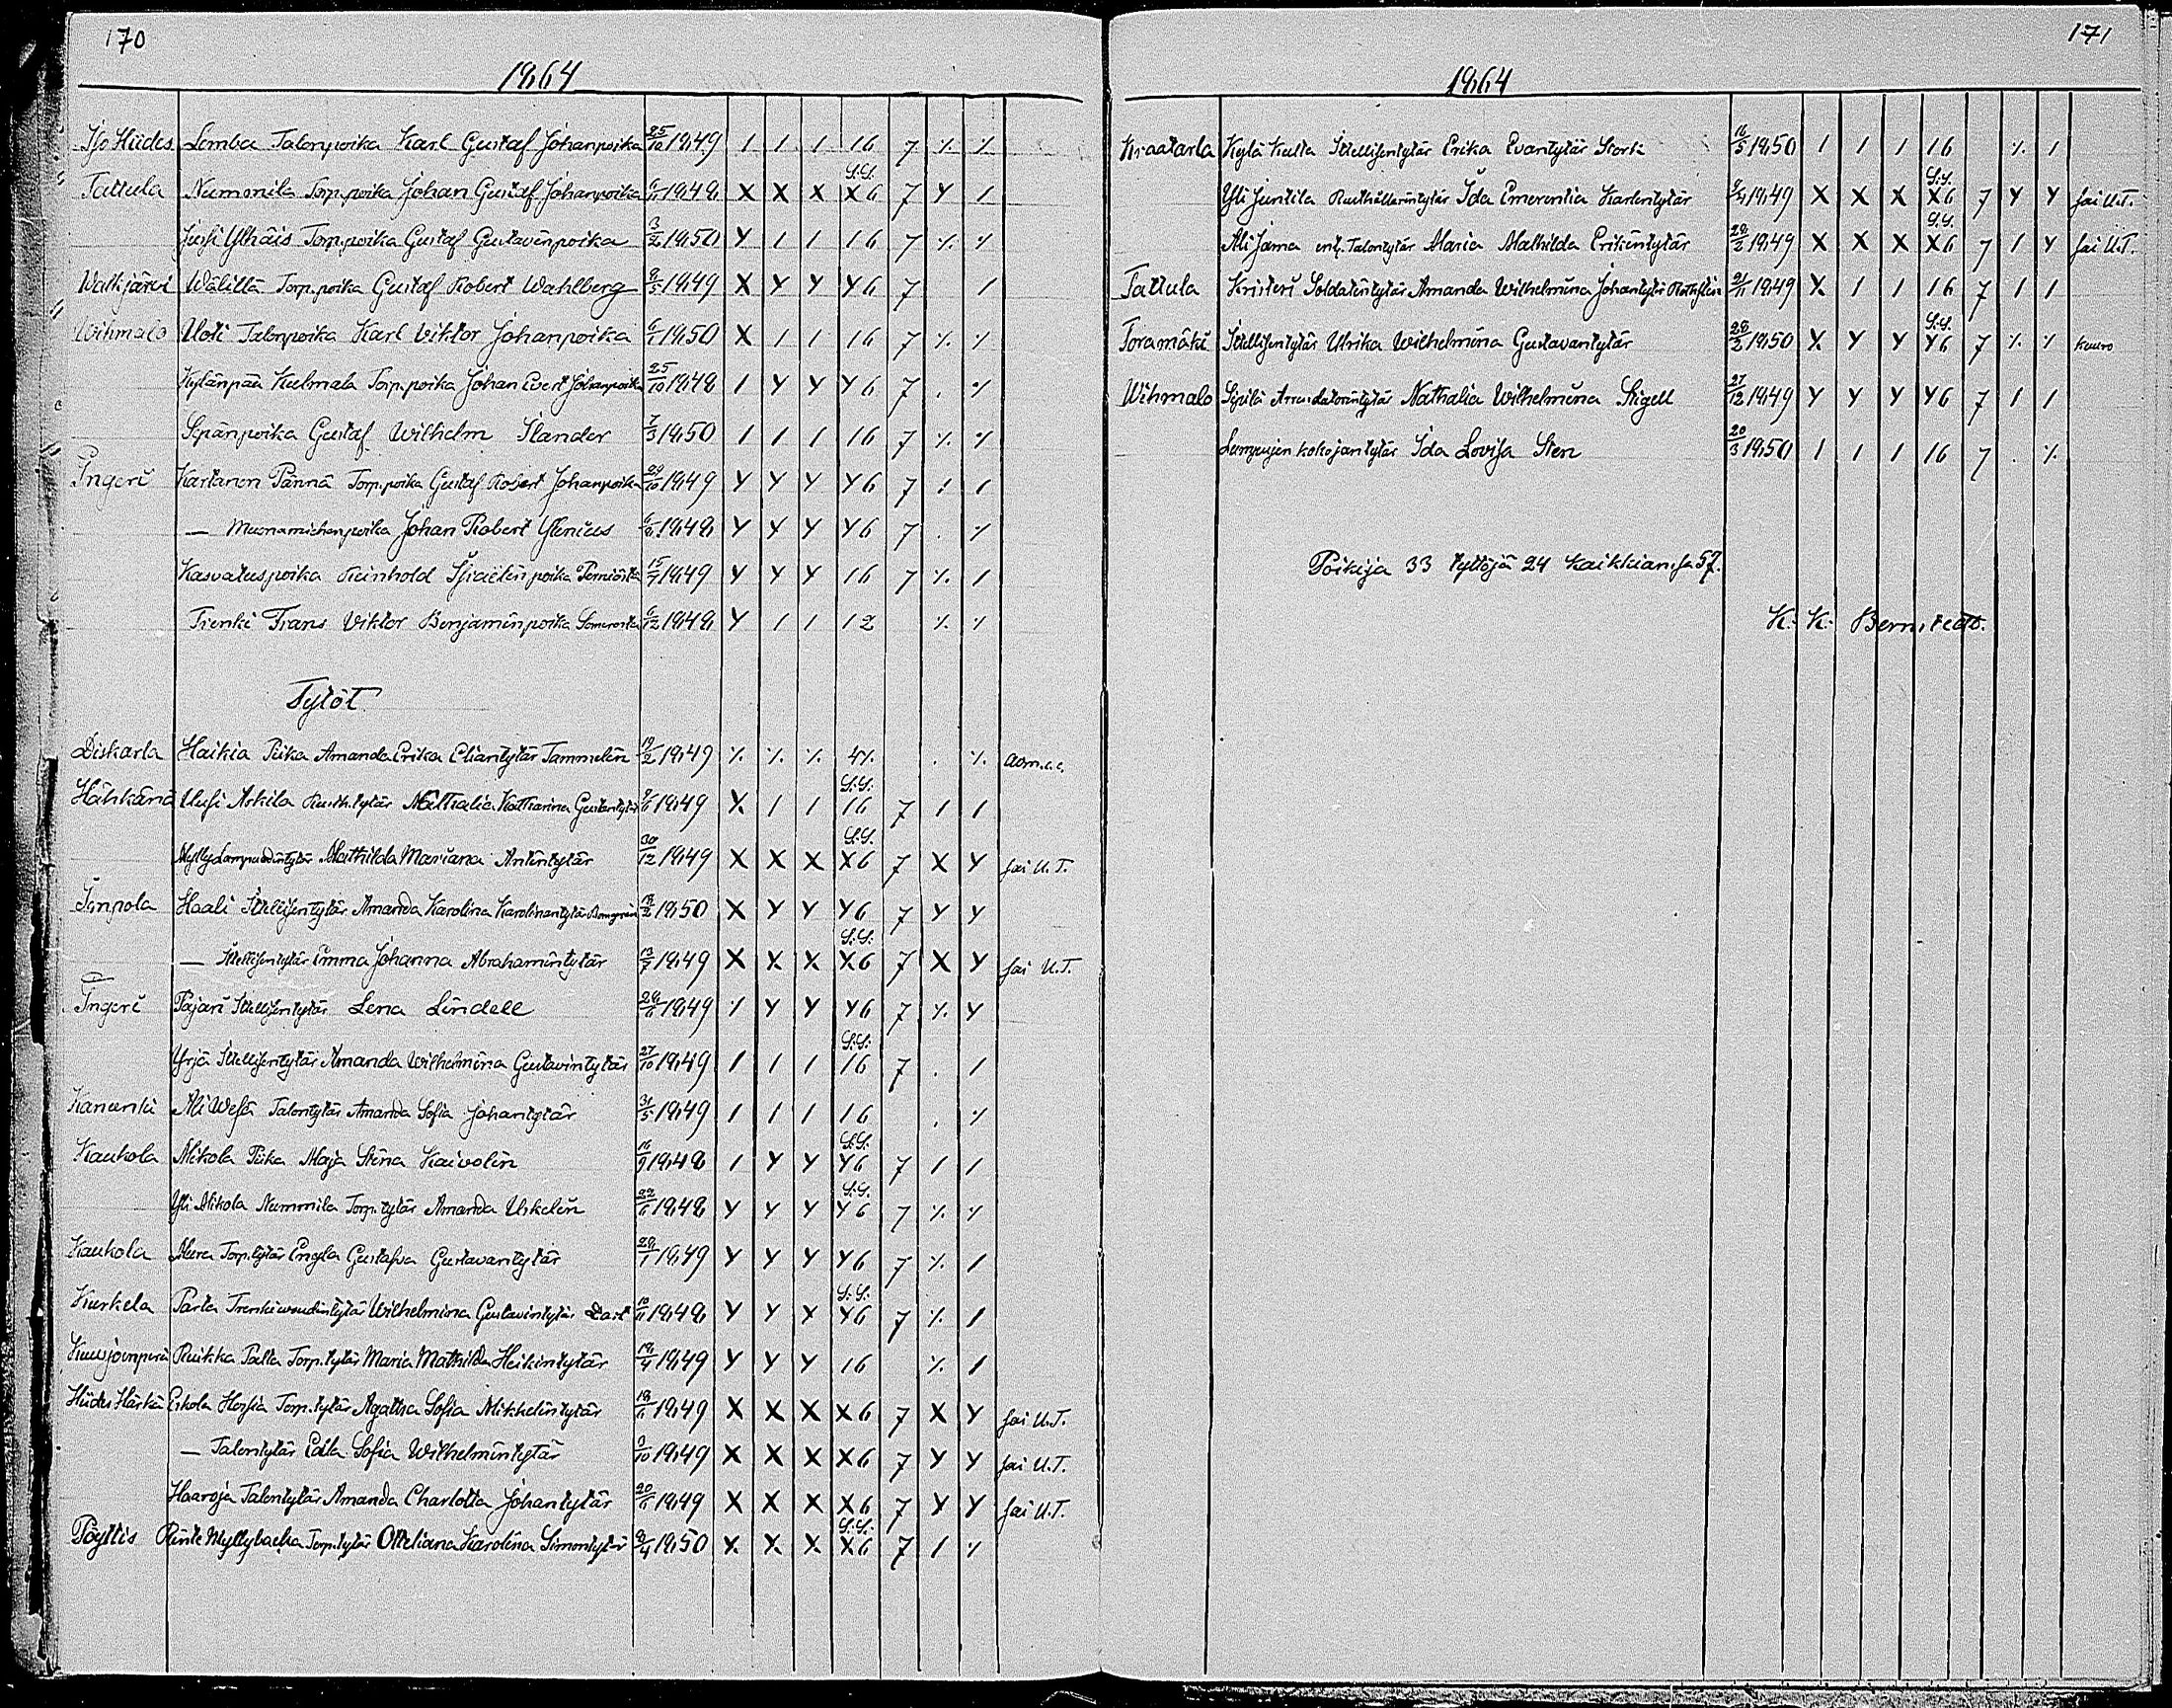 170
1864
Iso Hiides Lemba Talonpoika Karl Gustaf Johanpoika 25/10 1849 / / / 16 7 ٪ ٪
Tattula Nummila Torp.poika Johan Gustaf Johanpoika 1848 X X X X6 S.S. 7 Y /
Torp.poika Gustaf Gustavinpoika 1850 Y / / 16 7 ٪ ٪
Walkjärvi Wälillä Torp.poika Gustaf Robert Wahlberg 1849 X Y Y Y6 7 /
Wihmalo Uoti Talonpoika Karl Viktor Johanpoika 1850 X / / 16 7 ٪ ٪
Kylänpää Kulmala Torp.poika Johan Evert Johanpoika 25/10 1848 / Y Y Y6 7 . ٪
Sepänpoika Gustaf Wilhelm Ilander 7/3 1850 / / / 16 7 ٪ ٪
Ingeri Kartanon Pännä Torp.poika Gustaf Robert Johanpoika 29/10 1849 Y Y Y Y6 7 / /
— Muonamiehenpoika Johan Robert Glenius 1848 Y Y Y Y6 7 . ٪
Kasvatuspoika Reinhold 15/7 1849 Y Y Y 16 7 ٪ /
Trenki Frans Viktor Benjaminpoika Somerosta 6/12 1848 Y / / 12 ٪ ٪
Tytöt
Diskarla Haikia Piika Amanda Erika Eliantytär Tammelin 19/2 1849 ٪ ٪ ٪ 4٪ . ٪
Hähkänä Uusi Askila Rusth.tytär Nathalia Katharina Gustavintytär 1849 X / / 16 S.S. 7 / /
Mathilda Mariana Antintytär 30/12 1849 X X X X6 S.S. 7 X Y sai U.T.
Isopola Haali Itsellisentytär Amanda Karolina Karolinantytär 18/2 1850 X Y Y Y6 7 Y Y
— Itsellisentytär Emma Johanna Abrahamintytär 13/7 1849 X X X X6 S.S. 7 X Y sai U.T.
Ingeri Pajari Itsellisentytär Lena Lindell 1849 ٪ Y Y Y6 7 ٪ Y
Yrjä Itsellisentytär Amanda Wilhelmina Gustavintytär 27/10 1849 / / / 16 S.S. 7 . /
Kanunki Ali Wesa Talontytär Amanda Sofia Johantytär 31/5 1849 / / / 16 . ٪
Kaukola Mikola Piika Maja Stina Kaivolin 16/9 1848 / Y Y Y6 S.S. 7 / /
Yli Mikola Nummila Torp.tytär Amanda Uskelin 1848 Y Y Y Y6 S.S. 7 ٪ ٪
Kaukola Torp.tytär Engla Gustafva Gustavantytär 28/1 1849 Y Y Y Y6 7 ٪ /
Kurkela Parta Trenkivoudintytär Wilhelmina Gustavintytär 10/11 1848 Y Y X Y6 S.S. 7 ٪ /
Kuusjoenperä Ruikka Palla Torp.tytär Maria Mathilda Heikintytär 1849 Y Y Y 16 ٪ /
Hiides Härkä Eskola Hossia Torp.tytär Agatha Sofia Mikkelintytär 1849 X X X X6 7 X Y sai U.T.
— Talontytär Edla Sofia Wilhelmintytär 1849 X X X X6 7 Y Y sai U.T.
Haaroja Talontytär Amanda Charlotta Johantytär 1849 X X X X6 7 Y Y sai U.T.
Pöytiö Torp.tytär Otteliana Karolina Simontytär 1850 X X X X6 S.S. 7 / ٪
171
1864
Kraatarla Kylä Kulla Itsellisentytär Erika Evantytär Stork 16/5 1850 / / / 16 ٪ /
Yli Juntila Rusthållarintytär Ida Emerentia Karlentytär 1849 X X X X6 S.S. 7 Y Y sai U.T.
Ali Jama ent. Talontytär Maria Mathilda Erikintytär 28/2 1849 X X X X6 S.S. 7 / Y sai U.T.
Tattula Kristeri Soldatintytär Amanda Wilhelmina Johantytär 21/11 1849 X / / 16 7 / /
Toramäki Itsellisentytär Ulrika Wilhelmina Gustavantytär 28/2 1850 X Y Y Y6 S.S. 7 ٪ ٪ kuuro
Wihmalo Sipilä Arrendatorintytär Nathalia Wilhelmina Sigell 27/12 1849 Y Y Y Y6 7 / /
Lumpujen kokojantytär Ida Lovisa Sten 20/3 1850 / / / 16 7 . ٪
Poikija 33 tyttöjä 24 kaikkiansa 57.
K. K. Bernstedt.